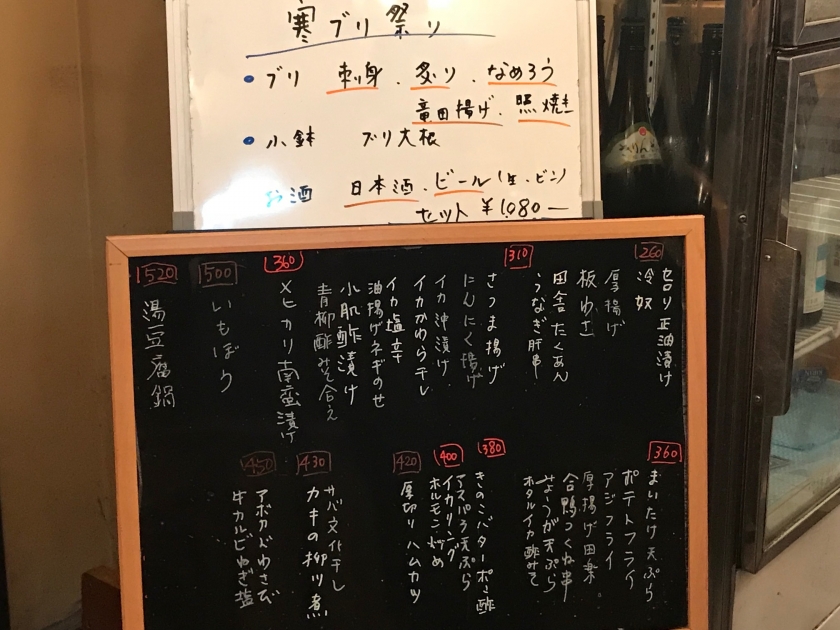 寒ブリ祭り
• ブリ 刺身 . 炙り . なめろう
竜田揚げ . 照焼き
• 小鉢 ブリ大根
お酒 日本酒 . ビール(生・ビン)
セット ¥1,080ー
260
セロリ正油漬け
冷奴
厚揚げ
板わさ
田舎たくあん
うなぎ肝串
310
さつま揚げ
にんにく揚げ
イカ沖漬け
イカかわら干し
イカ塩辛
油揚げネギのせ
小肌酢漬け
青柳酢みそ合え
360
メヒカリ南蛮漬け
500
いもぼう
520
湯豆腐鍋
360
まいたけ天ぷら
ポテトフライ
アジフライ
厚揚げ田楽
合鴨つくね串
みょうが天ぷら
ホタルイカ酢みそ
380
きのこバターポン酢
アスパラ天ぷら
400
イカリング
ホルモン炒め
420
厚切りハムカツ
430
サバ文化干し
カキの柳川煮
450
アボカドわさび
牛カルビねぎ塩